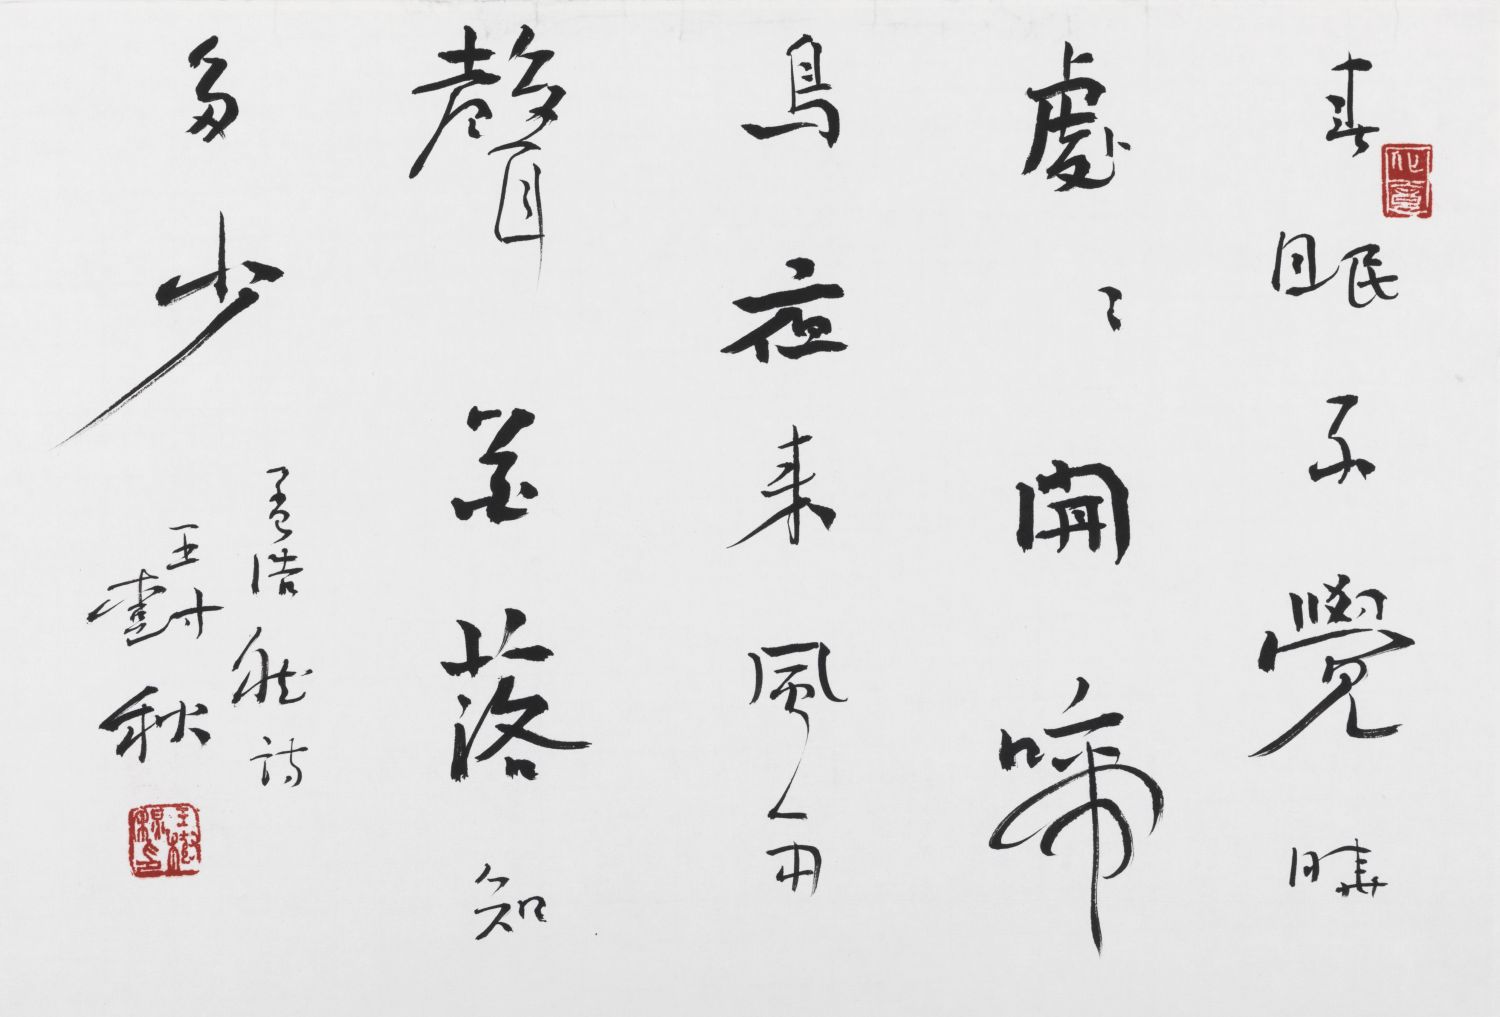 春眠不覺曉
處〻聞啼
鳥夜来風雨
聲花落知
多少
孟浩然詩
王樹秋